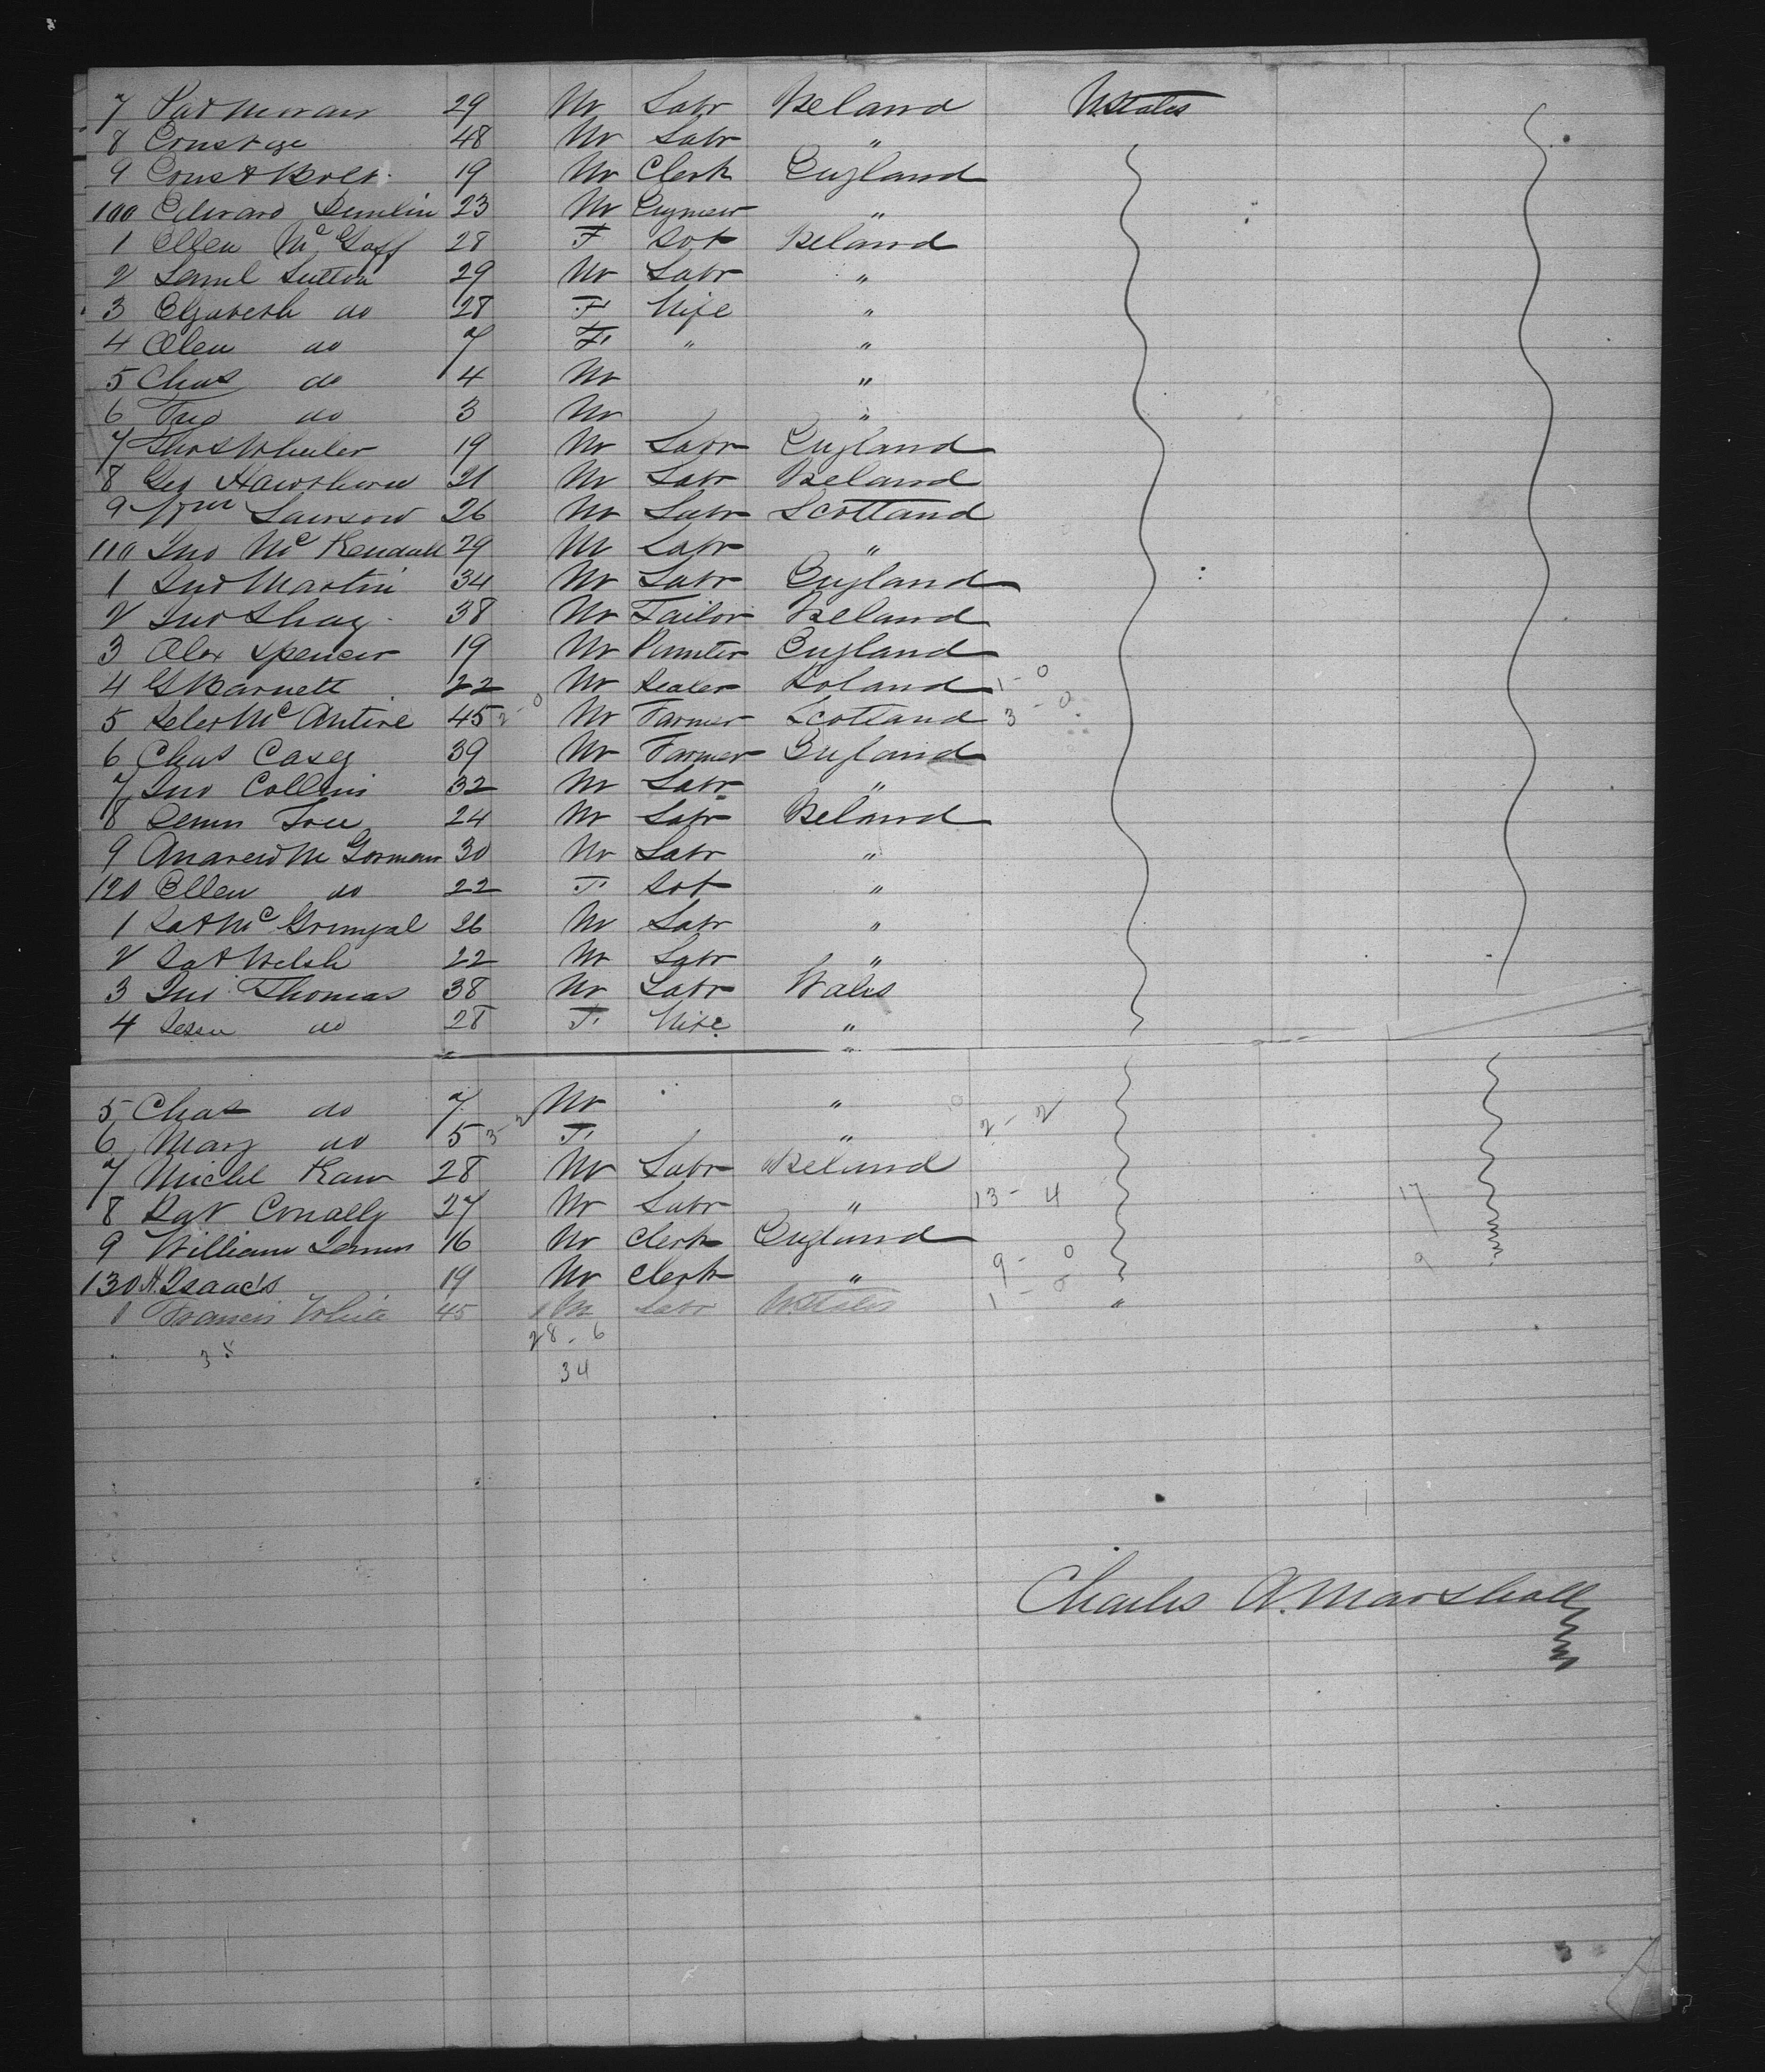 7 Pat Moran 29 M Labr Ireland U. States
8 48 M Labr "
9 19 M Clerk England
100 Edward 23 M "
1 Ellen McGaff 28 F Ireland
2 Saml Sutton 29 M Labr "
3 Elizabeth do 28 F Wife "
4 do 7 F " "
5 Chas do 4 M "
6 do 3 M "
7 Thos Wheeler 19 M Labr England
8 Geo Hawthorn 21 M Labr Ireland
9 Wm Lawson 26 M Labr Scotland
110 Jno Mc Kendall 29 M Labr "
1 Jno Martin 34 M Labr England
2 Jno Shay 38 M Tailor Ireland
3 Alex Spencer 19 M England
4 G Barnett 22 M Dealer Poland 1 - 0
5 Peter Mc Antire 45 2 - 0 M Farmer Scotland 3 - 0
6 Chas Casey 39 M Farmer England
7 Jno Collins 32 M Labr "
8 24 M Labr Ireland
9 Andrew Mc Gorman 30 M Labr "
120 Ellen do 22 F "
1 Pat Mc 26 M Labr "
2 Pat Welsh 22 M Labr "
3 Jno Thomas 38 M Labr Wales
4 do 28 F Wife "
"
5 Chas do 7 M "
6 Mary do 5 3 - 2 F " 2 - 2
7 Michl 28 M Labr Ireland
8 Pat Conally 27 M Labr " 13 - 4 17
9 William 16 M Clerk England
130 A. Isaacs 19 M Clerk " 9 - 0 9
1 Francis White 45 M Labr U. States 1 - 0 "
28 - 6
34
Charles A. Marshall